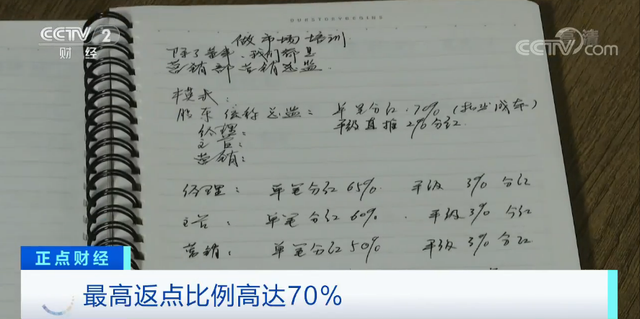 CCTV 2
财经
CCTV.com
做市场培训
除了董事,我们都是
营销部营销总监
模式:
股东统称总监: 单笔分红.70%(扣业成本)
平级直推2%分红
经理:
主管:
营销:
经理: 单笔分红65% 平级 3% 分红
主管: 单笔分红60%. 平级 3% 分红
营销: 单笔分红50% 平级 3% 分红
正点财经
最高返点比例高达70%